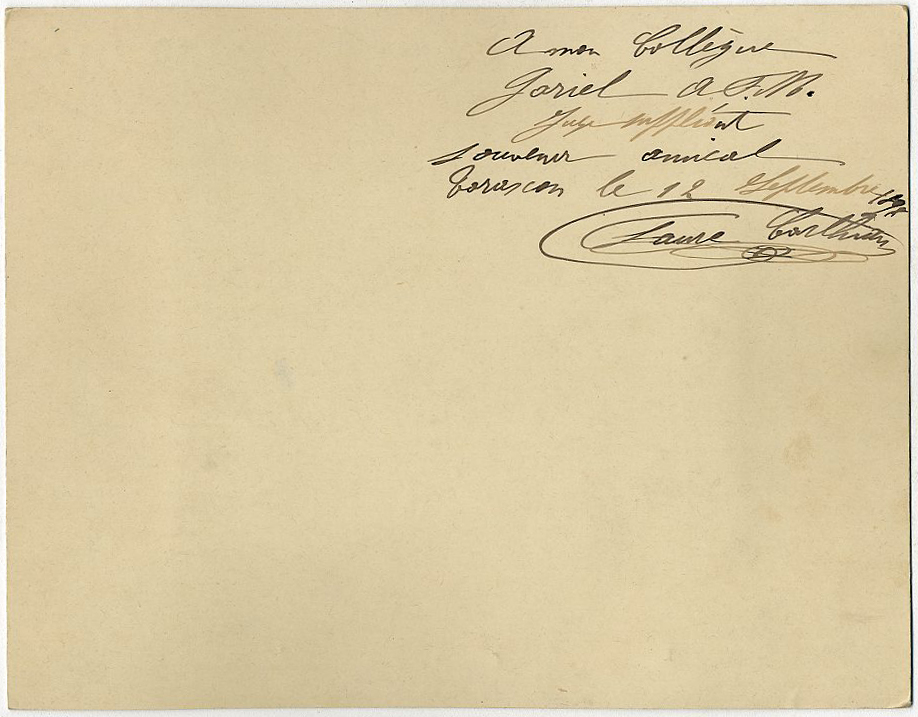 A mon Collègue
Gariel A F.M.
Juge suppléant
Souvenir amical
Tarascon le 12 Septembre
Laure